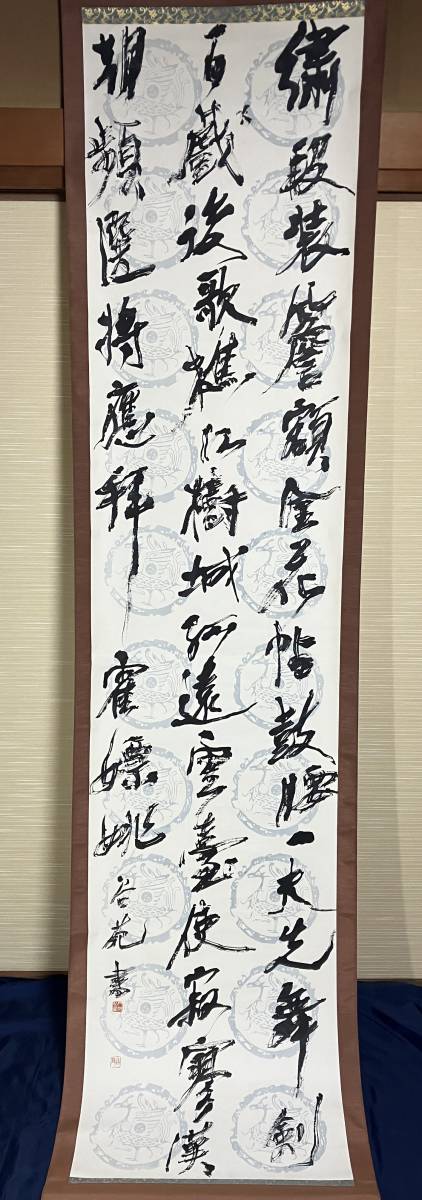 繡段裝簷額金花帖鼓腰一夫先舞劍
百戲後歌樵江樹城孤遠雲臺使寂寥漢
朝頻選將應拜霍嫖姚 谷苑書